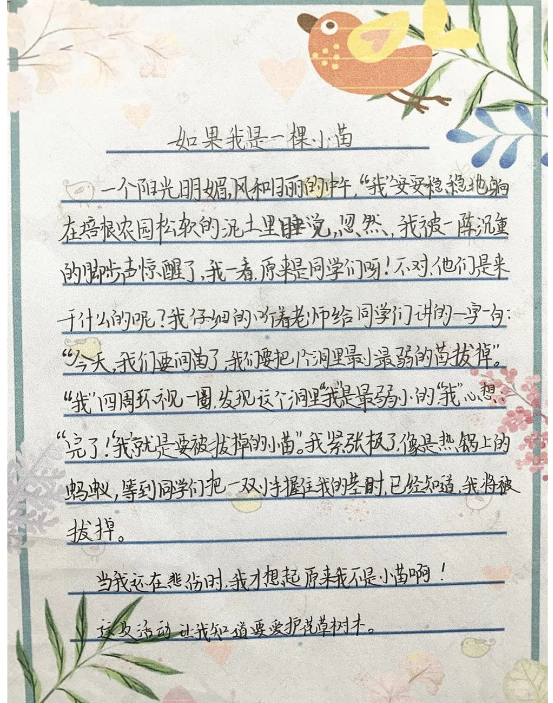 如果我是一棵小苗
一个阳光明媚,风和日丽的中午,“我”安安稳稳地躺
在培根农园松软的泥土里睡觉,忽然,我被一阵沉重
的脚步声惊醒了,我一看,原来是同学们呀!不对,他们是来
干什么的呢?我仔细的听着老师给同学们讲的一字一句:
“今天,我们要间苗了,我们要把个洞里最小最弱的苗拔掉”。
“我”四周环视一圈,发现这个洞里“我”是最弱小的“我”心想:
“完了!“我”就是要被拔掉的小苗”。我紧张极了,像是热锅上的
蚂蚁,等到同学们把一双小手握住我的茎时,已经知道,我将被
拔掉。
当我还在悲伤时,我才想起原来我不是小苗啊!
这次活动让我知道要爱护花草树木。